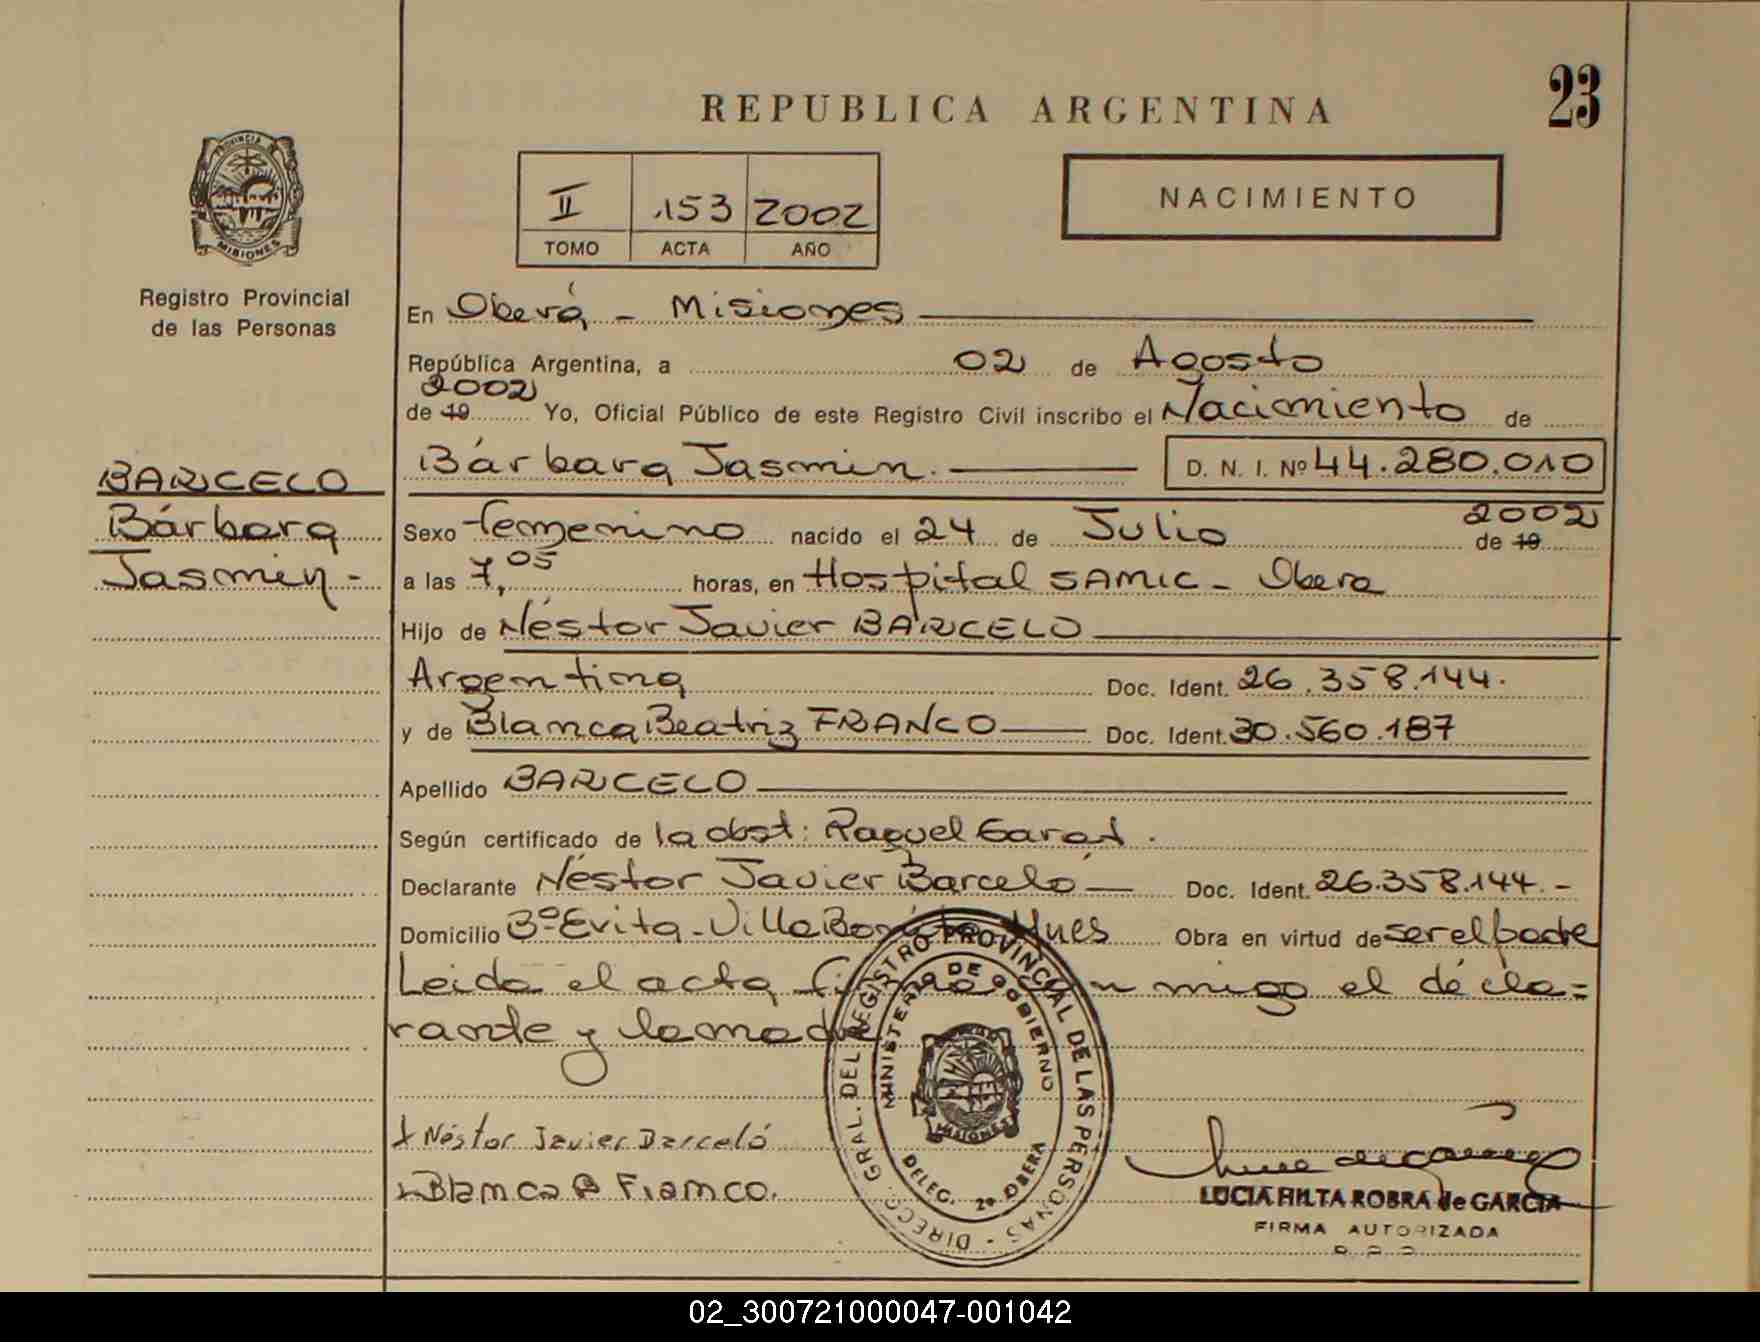 23
REPUBLICA ARGENTINA
PROVINCIA DE
MISIONES
Registro Provincial
de las Personas
II 153 2002
TOMO ACTA AÑO
NACIMIENTO
En Oberá - Misiones
República Argentina, a 02 de Agosto
2002
de 19 Yo, Oficial Público de este Registro Civil inscribo el Nacimiento de
Bárbara Jasmin. D. N. I. Nº 44.280.010
BARCELO
Bárbara
Jasmin -
Sexo femenino nacido el 24 de Julio de 19 2002
a las 7,05 horas, en Hospital SAMIC - Obera
Hijo de Néstor Javier BARCELO
Argentina Doc. Ident. 26.358.144.
y de Blanca Beatriz FRANCO Doc. Ident. 30.560.187
Apellido BARCELO
Según certificado de la obst: Raquel Garat.
Declarante Néstor Javier Barceló Doc. Ident. 26.358.144.-
Domicilio Bº Evita - Villa Bonita - Mnes Obra en virtud de ser el padre
Leida el acta, firma con migo el décla=
rante y la madre
x Néstor Javier Barceló
x Blanca B Franco.
DIRECC. GRAL. DEL REGISTRO PROVINCIAL DE LAS PERSONAS -
MINISTERIO DE GOBIERNO
MISIONES
DELEG. 2ª OBERA
LUCIA HILTA ROBRA de GARCIA
FIRMA AUTORIZADA
02_300721000047-001042